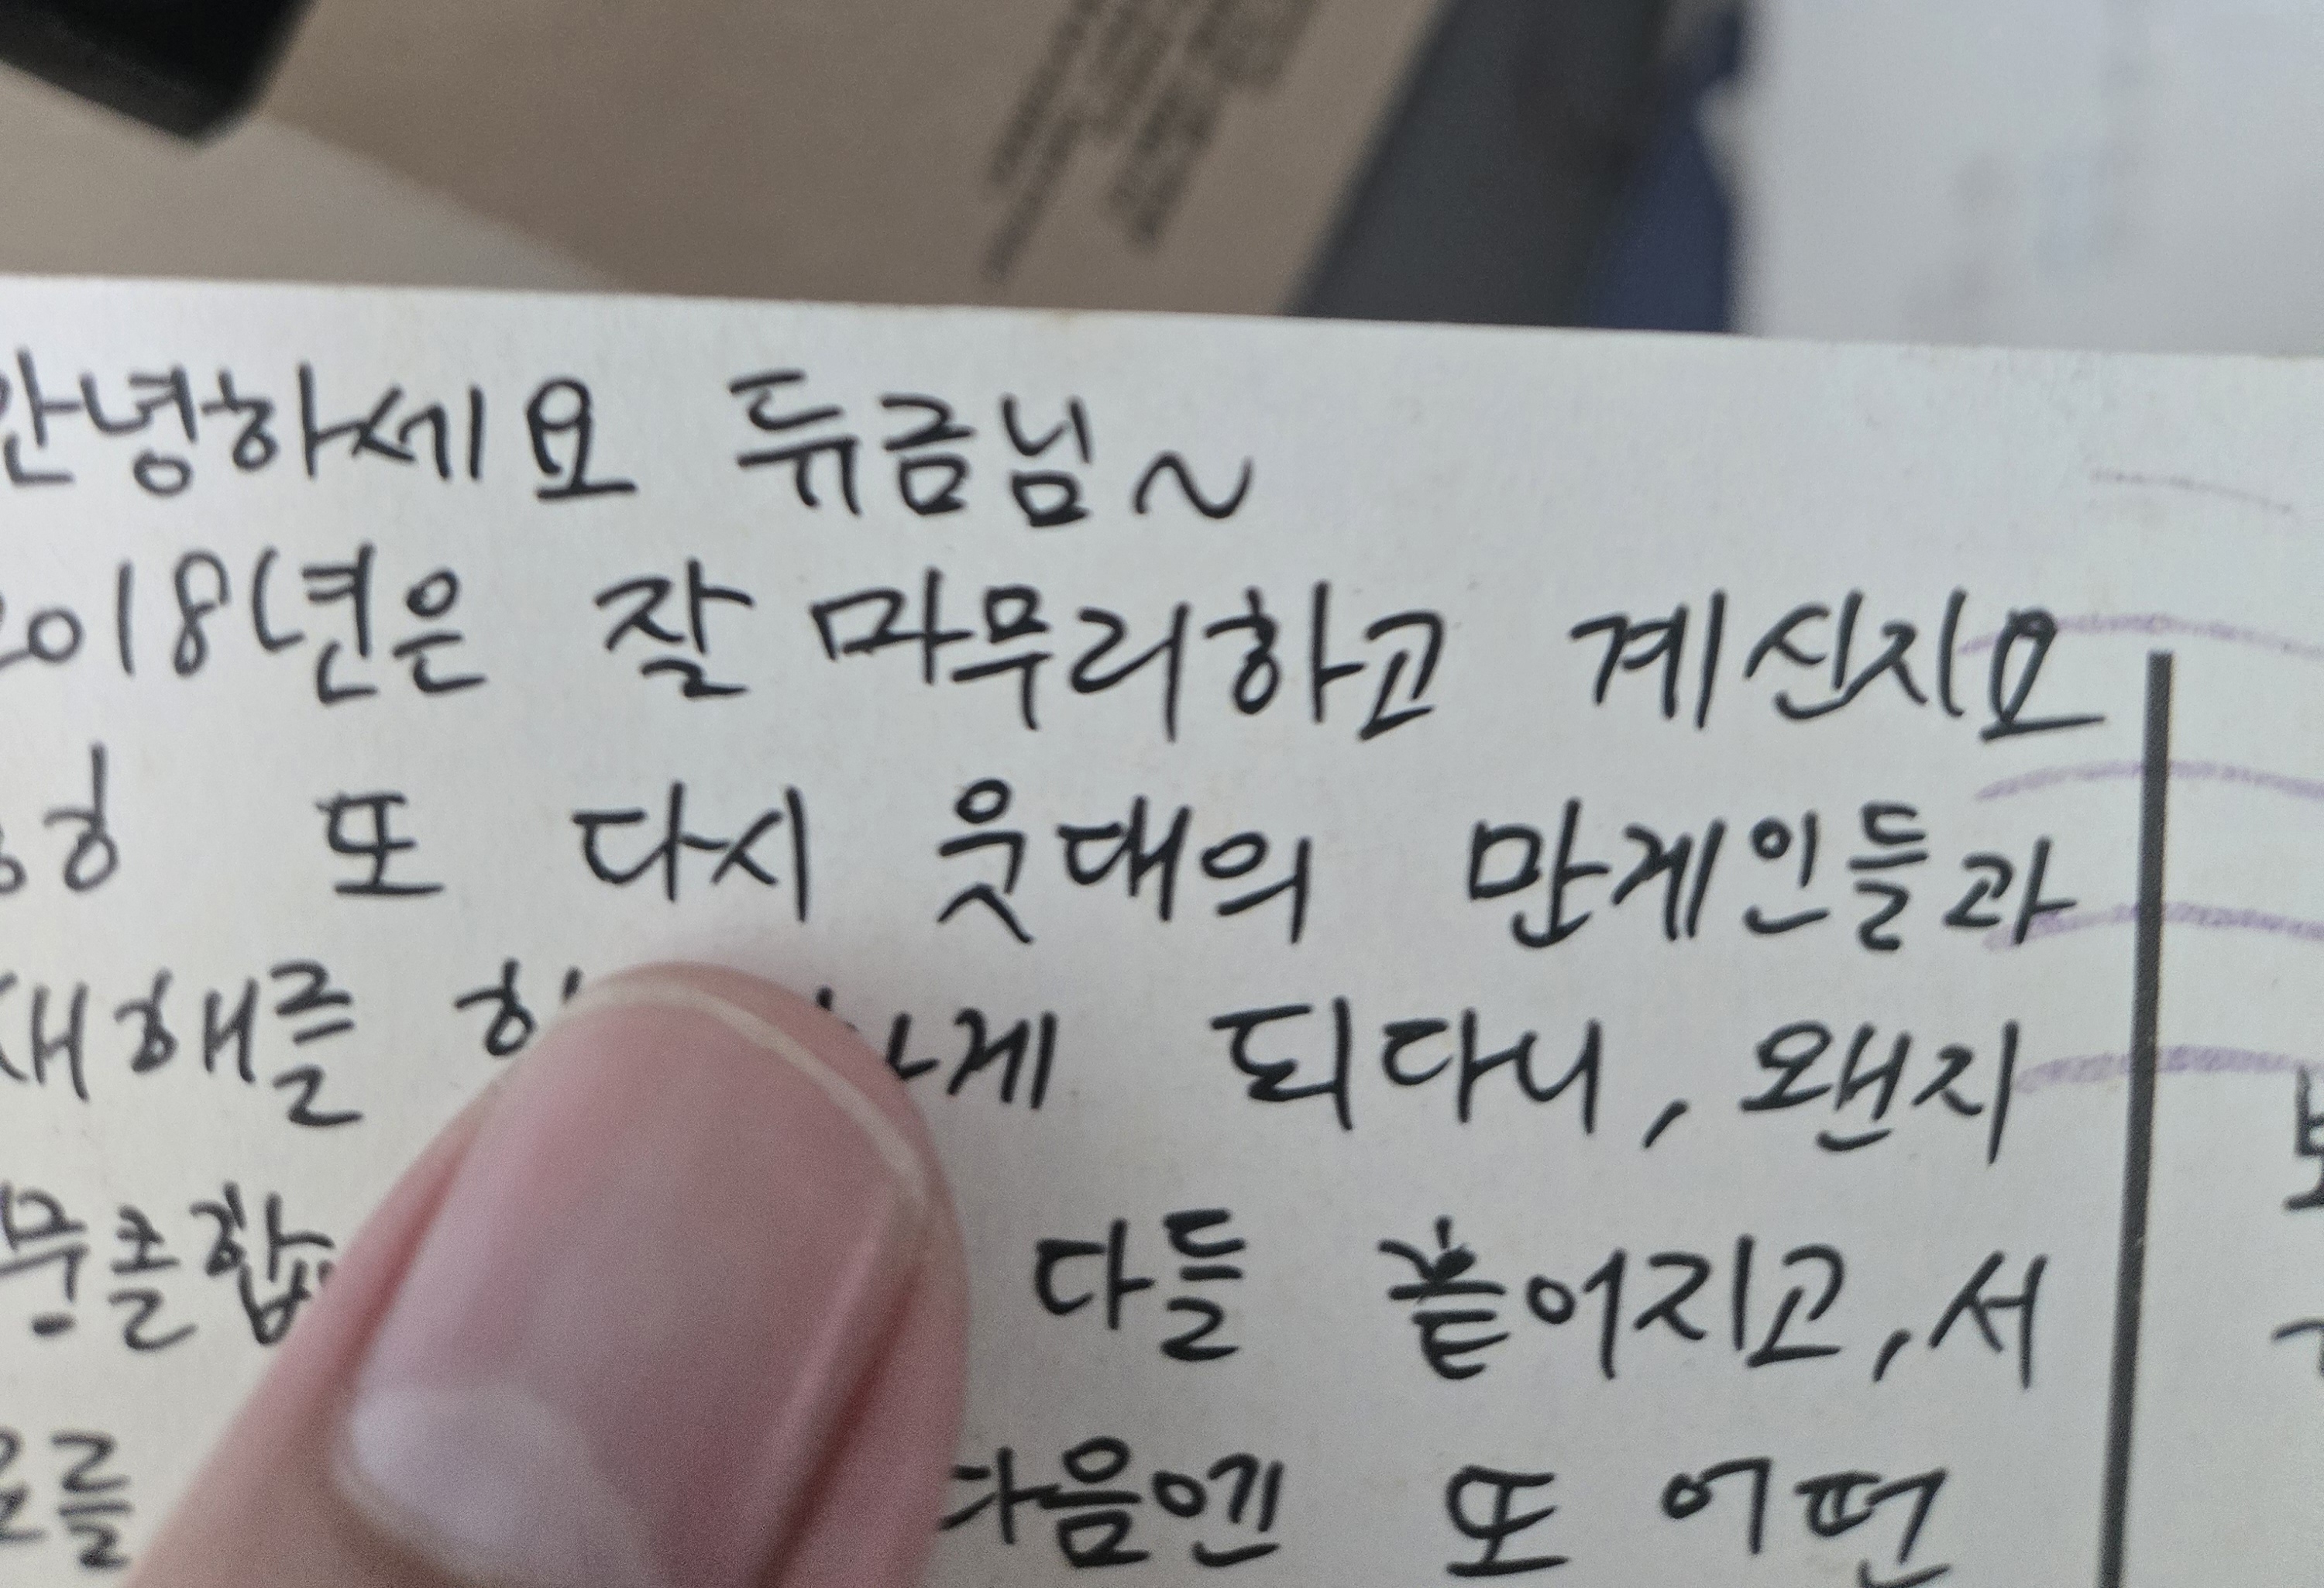 안녕하세요 듀금님~
2018년은 잘 마무리하고 계신지요
흥흥 또 다시 웃대의 만게인들과
새해를 하게 되다니, 왠지
뭉클합 다들 흩어지고, 서
다음엔 또 어떤